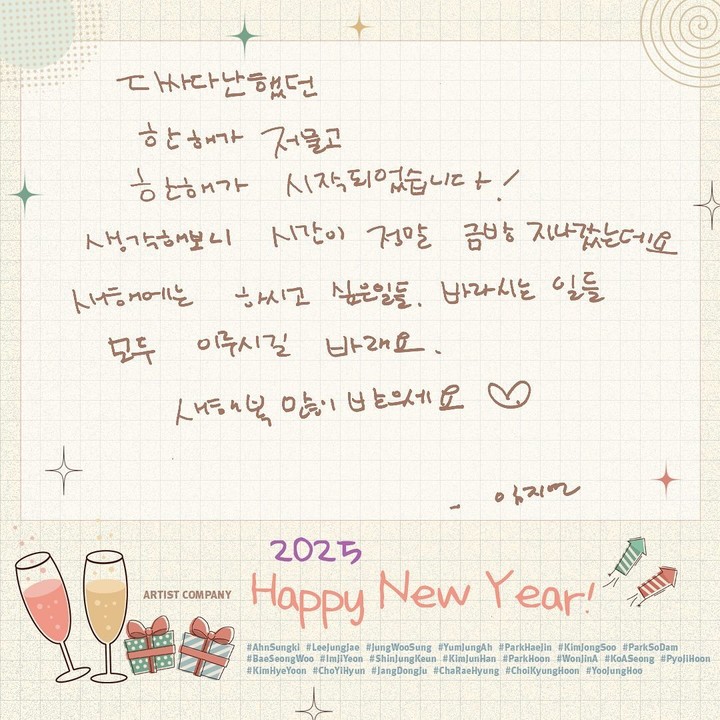 다사다난했던
한해가 저물고
한해가 시작되었습니다!
생각해보니 시간이 정말 금방 지나갔는데요
새해에는 하시고 싶은일들, 바라시는 일들
모두 이루시길 바래요.
새해복 많이 받으세요 ♡
- 임지연
2025
ARTIST COMPANY
Happy New Year!
#AhnSungki #LeeJungJae #JungWooSung #YumJungAh #ParkHaeJin #KimJongSoo #ParkSoDam
#BaeSeongWoo #ImJiYeon #ShinJungKeun #KimJunHan #ParkHoon #WonJinA #KoASeong #PyoJiHoon
#KimHyeYoon #ChoYiHyun #JangDongJu #ChaRaeHyung #ChoiKyungHoon #YooJungHoo